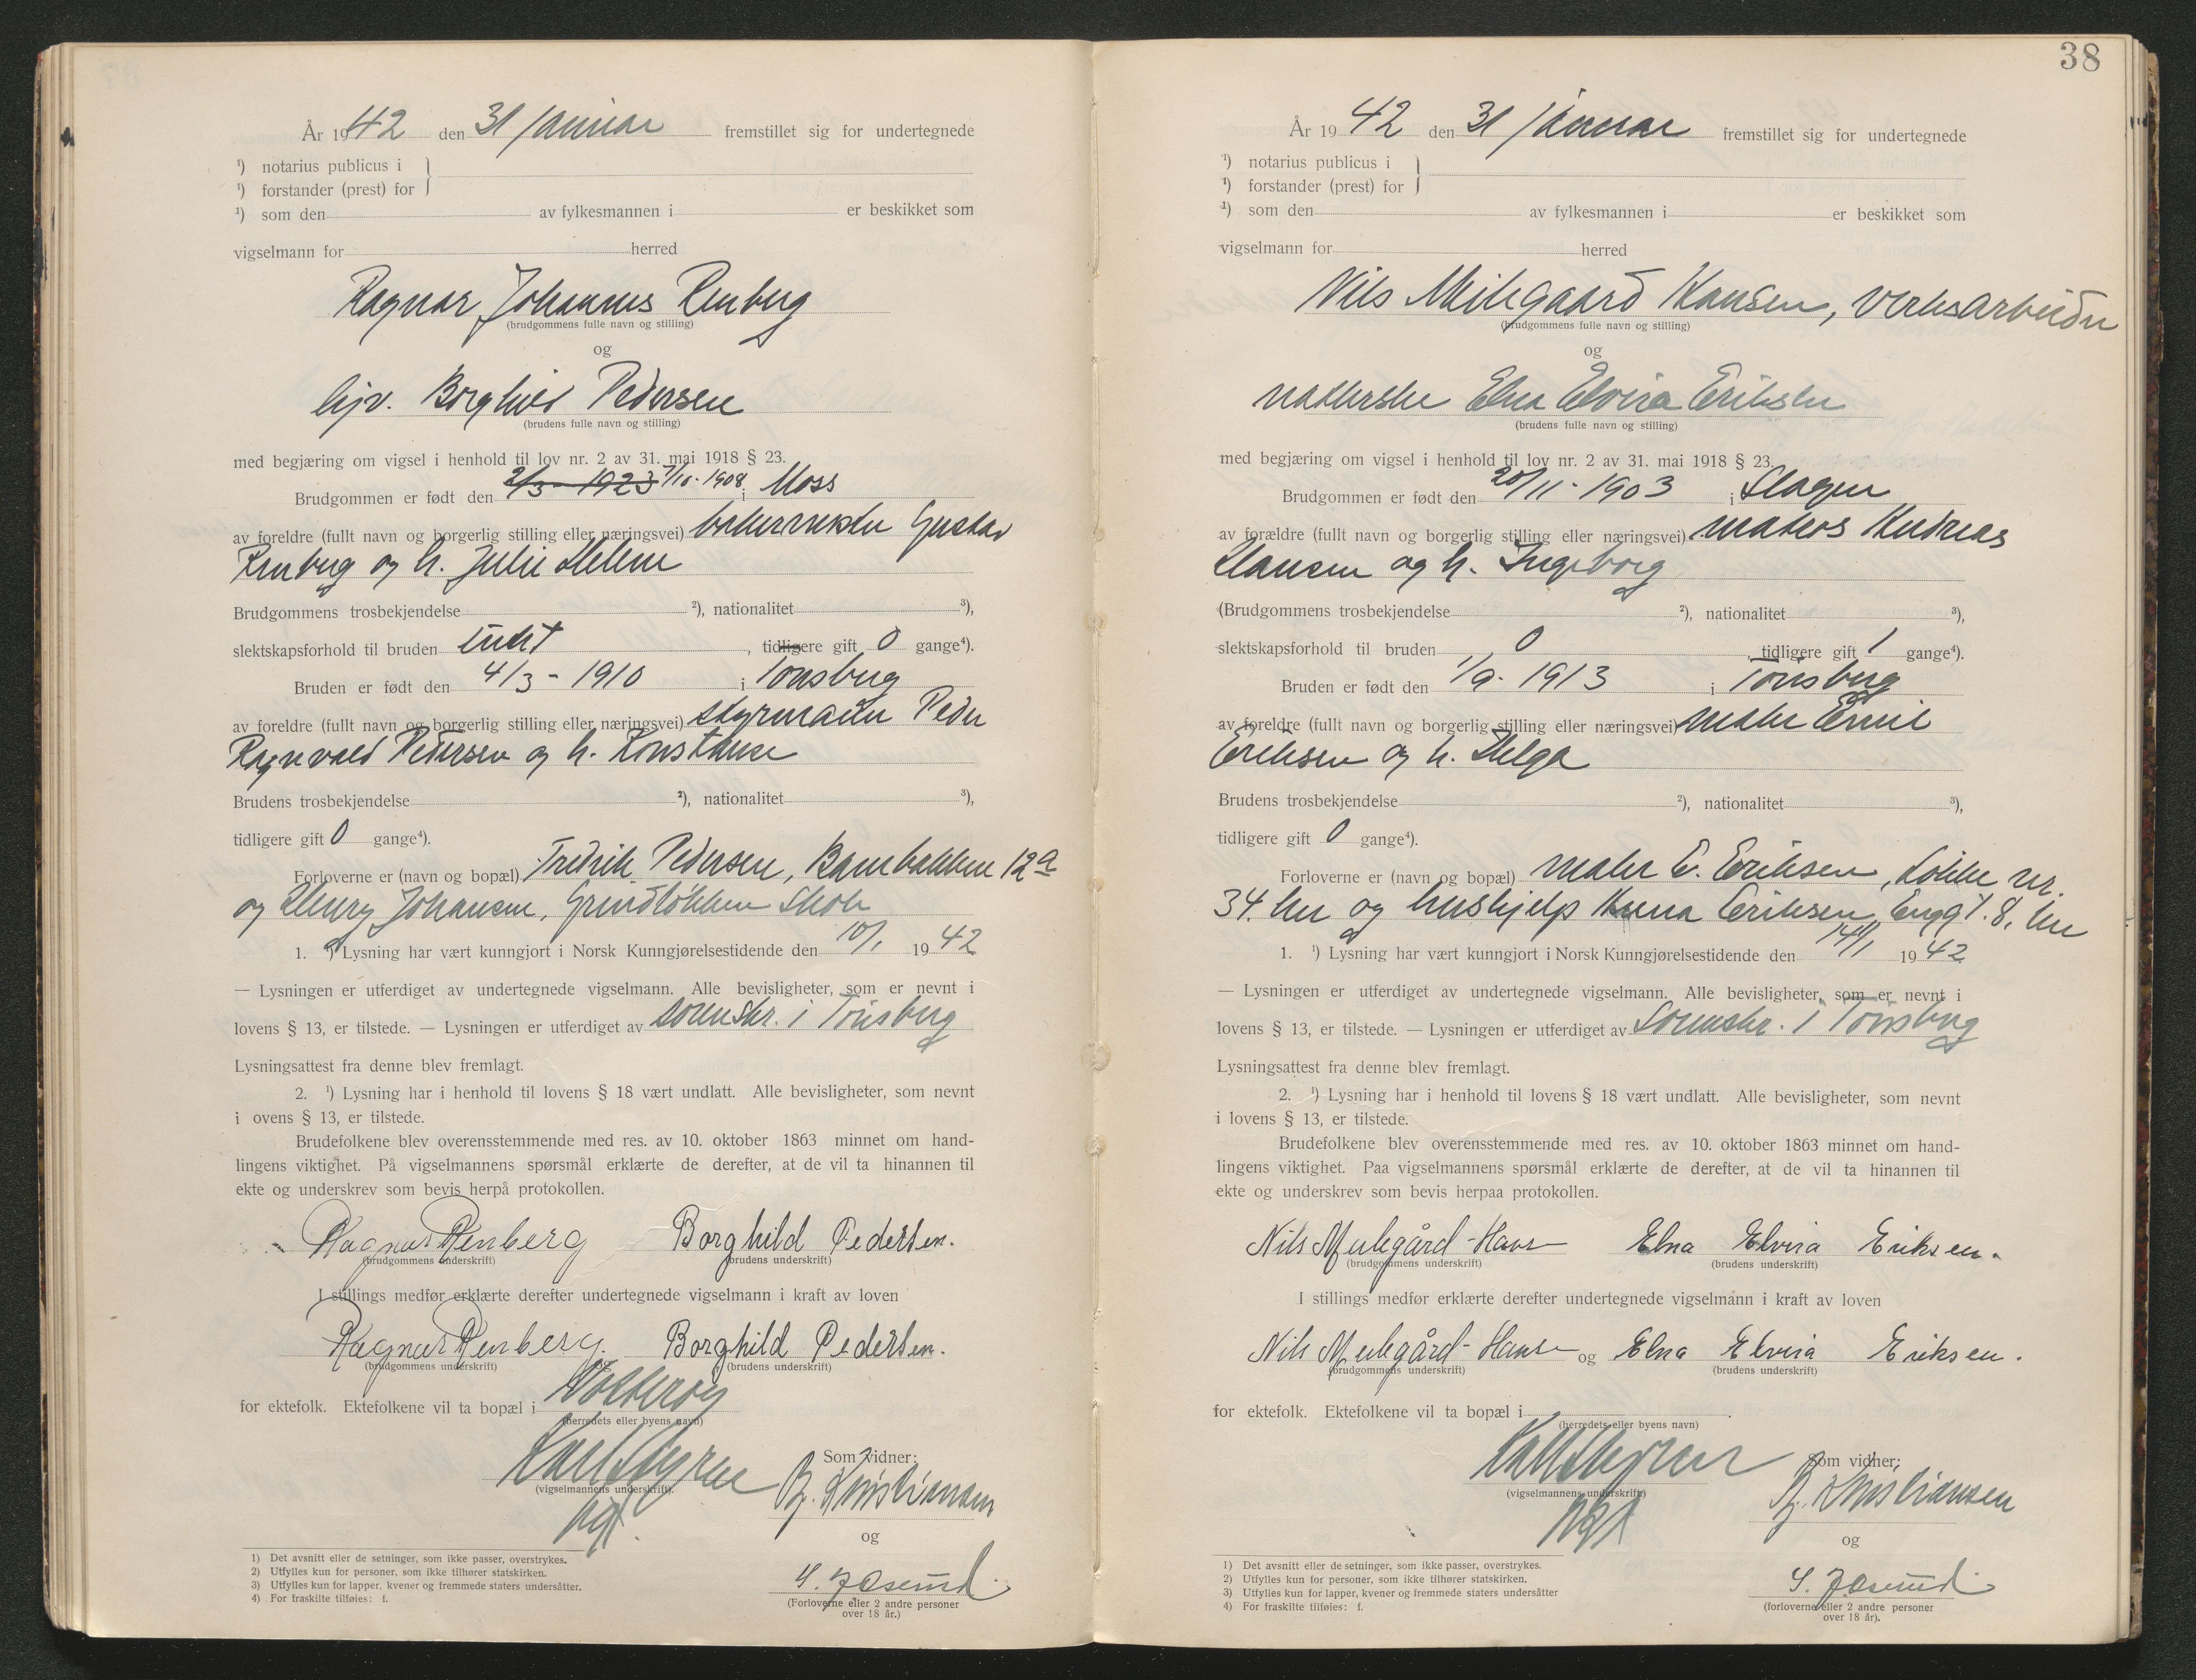 År 1942 den 31 januar fremstillet sig for undertegnede
¹) notarius publicus i
¹) forstander (prest) for
¹) som den av fylkesmannen i er beskikket som
vigselmann for herred
Ragnar Johannes Renberg
(brudgommens fulle navn og stilling)
og
Borghild Pedersen
(brudens fulle navn og stilling)
med begjæring om vigsel i henhold til lov nr. 2 av 31. mai 1918 § 23.
Brudgommen er født den 2/3 - 1923 7/10 - 1908 i Moss
av foreldre (fullt navn og borgerlig stilling eller næringsvei) bakermester Gustav
Renberg og h. Julie Helene
Brudgommens trosbekjendelse ²), nationalitet ³),
slektskapsforhold til bruden intet, tidligere gift 0 gange⁴).
Bruden er født den 4/3 - 1910 i Tønsberg
av foreldre (fullt navn og borgerlig stilling eller næringsvei) styrmann Peder
Ragnvald Pedersen og h. Konstanse
Brudens trosbekjendelse ²), nationalitet ³),
tidligere gift 0 gange⁴).
Forloverne er (navn og bopæl) Fredrik Pedersen, Banebakken 12a
og Henry Johansen, Grindløkken Skole
1. ¹) Lysning har vært kunngjort i Norsk Kunngjørelsestidende den 10/1 1942
— Lysningen er utferdiget av undertegnede vigselmann. Alle bevisligheter, som er nevnt i
lovens § 13, er tilstede. — Lysningen er utferdiget av sorenskr. i Tønsberg
Lysningsattest fra denne blev fremlagt.
2. ¹) Lysning har i henhold til lovens § 18 vært undlatt. Alle bevisligheter, som nevnt
i ovens § 13, er tilstede.
Brudefolkene blev overensstemmende med res. av 10. oktober 1863 minnet om hand-
lingens viktighet. På vigselmannens spørsmål erklærte de derefter, at de vil ta hinannen til
ekte og underskrev som bevis herpå protokollen.
Ragnar Renberg Borghild Pedersen.
(brudgommens underskrift) (brudens underskrift)
I stillings medfør erklærte derefter undertegnede vigselmann i kraft av loven
Ragnar Renberg. Borghild Pedersen.
(brudgommens underskrift) (brudens underskrift)
for ektefolk. Ektefolkene vil ta bopæl i Nøtterøy
(herredets eller byens navn)
Som vidner:
(vigselmannens underskrift).
B. Kristiansen
og
(Forloverne eller 2 andre personer
over 18 år.)
1) Det avsnitt eller de setninger, som ikke passer, overstrykes.
2) Utfylles kun for personer, som ikke tilhører statskirken.
3) Utfylles kun for lapper, kvener og fremmede staters undersåtter.
4) For fraskilte tilføies: f.
38
År 1942 den 31 januar fremstillet sig for undertegnede
¹) notarius publicus i
¹) forstander (prest) for
¹) som den av fylkesmannen i er beskikket som
vigselmann for herred
Nils Milegaard Hansen, verksarbeider
(brudgommens fulle navn og stilling)
og
Elna Elvira Eriksen
(brudens fulle navn og stilling)
med begjæring om vigsel i henhold til lov nr. 2 av 31. mai 1918 § 23.
Brudgommen er født den 20/11 - 1903 i Slagen
av forældre (fullt navn og borgerlig stilling eller næringsvei) matros Andreas
Hansen og h. Ingeborg
(Brudgommens trosbekjendelse ²), nationalitet ³),
slektskapsforhold til bruden 0, tidligere gift 1 gange⁴).
Bruden er født den 1/9 - 1913 i Tønsberg
av foreldre (fullt navn og borgerlig stilling eller næringsvei) maler Emil
Eriksen og h. Helga
Brudens trosbekjendelse ²), nationalitet ³),
tidligere gift 0 gange⁴).
Forloverne er (navn og bopæl) maler E. Eriksen, Løkke nr.
34. her og hushjelp Anna Eriksen, Enggt. 8, her
1. ¹) Lysning har vært kunngjort i Norsk Kunngjørelsestidende den 14/1 1942
— Lysningen er utferdiget av undertegnede vigselmann. Alle bevisligheter, som er nevnt i
lovens § 13, er tilstede. — Lysningen er utferdiget av Sorenskr. i Tønsberg
Lysningsattest fra denne blev fremlagt.
2. ¹) Lysning har i henhold til lovens § 18 vært undlatt. Alle bevisligheter, som nevnt
i lovens § 13, er tilstede.
Brudefolkene blev overensstemmende med res. av 10. oktober 1863 minnet om hand-
lingens viktighet. Paa vigselmannens spørsmål erklærte de derefter, at de vil ta hinannen til
ekte og underskrev som bevis herpaa protokollen.
Nils Milegård-Hansen Elna Elvira Eriksen.
(brudgommens underskrift) (brudens underskrift)
I stillings medfør erklærte derefter undertegnede vigselmann i kraft av loven
Nils Milegård-Hansen og Elna Elvira Eriksen.
(brudgommens underskrift) (brudens underskrift)
for ektefolk. Ektefolkene vil ta bopæl i .
(herredets eller byens navn)
Som vidner:
(vigselmannens underskrift)
B. Kristiansen
og
(forloverne eller 2 andre personer
over 18 år).
1) Det avsnitt eller de setninger, som ikke passer, overstrykes.
2) Utfylles kun for personer, som ikke tilhører statskirken.
3) Utfylles kun for lapper, kvener og fremmede staters undersåtter
4) For fraskilte tilføies: f.